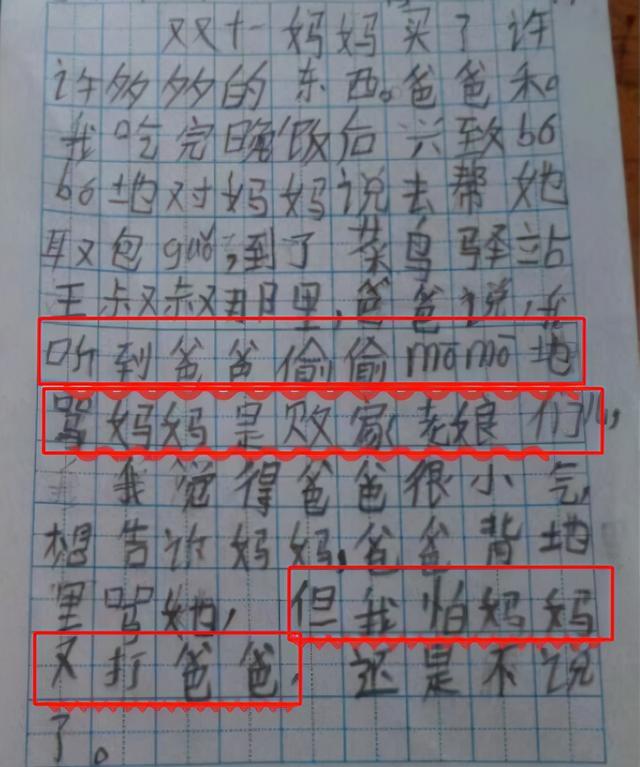 双十一妈妈买了许
许多多的东西。爸爸和。
我吃完晚饭后兴致bó
bó地对妈妈说去帮她
取包guǒ,到了菜鸟驿站
王叔叔那里,爸爸说,我
听到爸爸偷偷mōmō地
骂妈妈是败家老娘们儿,
我觉得爸爸很小气,
想告诉妈妈,爸爸背地
里骂她,但我怕妈妈
又打爸爸,还是不说
了。